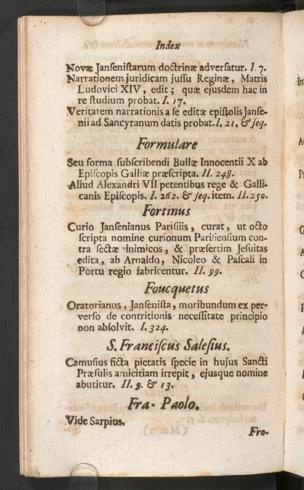 Index
Novæ Jansenistarum doctrinæ adversatur. I. 7.
Narrationem juridicam jussu Reginæ, Matris
Ludovici XIV, edit; quæ ejusdem hac in
re studium probat. I. 17.
Veritatem narrationis a se editæ epistolis Janse-
nii ad Sancyranum datis probat. I. 21. & seq.
Formulare
Seu forma subscribendi Bullæ Innocentii X ab
Episcopis Galliæ præscripta. II. 248.
Aliud Alexandri VII petentibus rege & Galli-
canis Episcopis. I. 262. & seq. item. II. 250.
Fortinus
Curio Jansenianus Parisiis, curat, ut octo
scripta nomine curionum Parisiensium con-
tra sectæ inimicos, & præsertim Jesuitas
edita, ab Arnaldo, Nicoleo & Pascali in
Portu regio fabricentur. II. 99.
Foucquetus
Oratorianus, Jansenista, moribundum ex per-
verso de contritionis necessitate principio
non absolvit. I. 324.
S. Franciscus Salesius.
Camusius ficta pietatis specie in hujus Sancti
Præsulis amicitiam irrepit, ejusque nomine
abutitur. II. 9. & 13.
Fra- Paolo.
Vide Sarpius.
Fro-